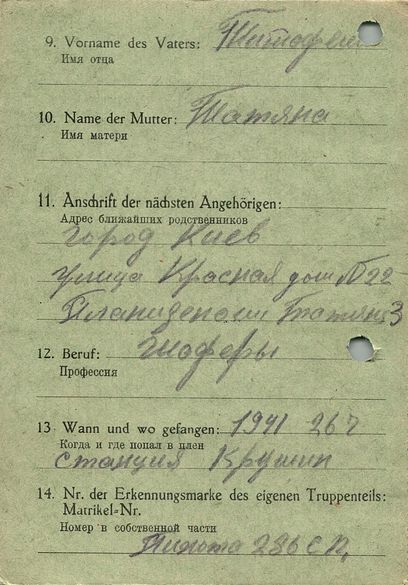 9. Vorname des Vaters:
Имя отца
10. Name der Mutter: Татяна
Имя матери
11. Anschrift der nächsten Angehörigen:
Адрес ближайших родственников
город Киев
улица Красная дом №22
Татяна 3
12. Beruf: Шоферы
Профессия
13 Wann und wo gefangen: 1941 267
Когда и где попал в плен
станция
14. Nr. der Erkennungsmarke des eigenen Truppenteils:
Matrikel=Nr.
Номер в собственной части
Пихота 286 С.П.